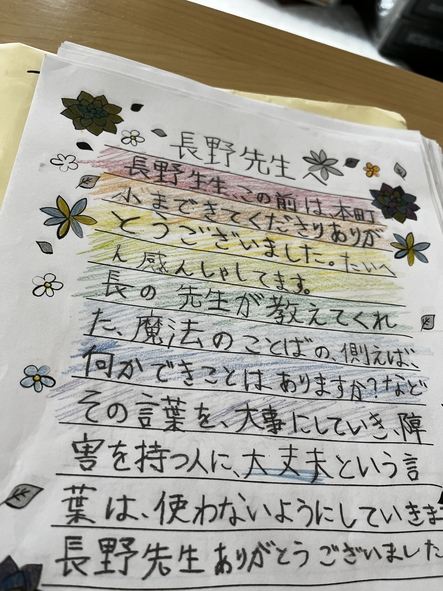 長野先生へ
長野先生、この前は、本町
小まできてくださりありが
とうございました。たいへ
ん感んしゃしてます。
長の 先生が教えてくれ
た、魔法のことばの、例えば、
何かできことは、ありますか?など
その言葉を、大事にしていき、障
害を持つ人に、大丈夫という言
葉は、使わないようにしていきま
長野先生ありがとうございました